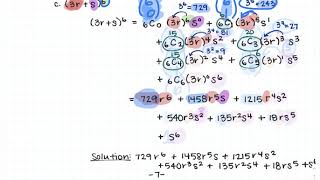 c. (3r+s)⁶ 6 3⁶=729 6 3⁵=243
(3r+s)⁶ = ₆C₀ (3r)⁶s⁰ + ₆C₁ (3r)⁵s¹
15 3⁴=81 20 3³=27
+ ₆C₂(3r)⁴s² + ₆C₃(3r)³s³
15 6
+ ₆C₄(3r)²s⁴ + ₆C₅(3r)¹s⁵
+ ₆C₆(3r)⁰s⁶
= 729r⁶ + 1458r⁵s + 1215r⁴s²
+ 540r³s³ + 135r²s⁴ + 18rs⁵
+ s⁶
Solution: 729r⁶ + 1458r⁵s + 1215r⁴s²
+540r³s³ + 135r²s⁴ + 18rs⁵ + s⁶
-7-